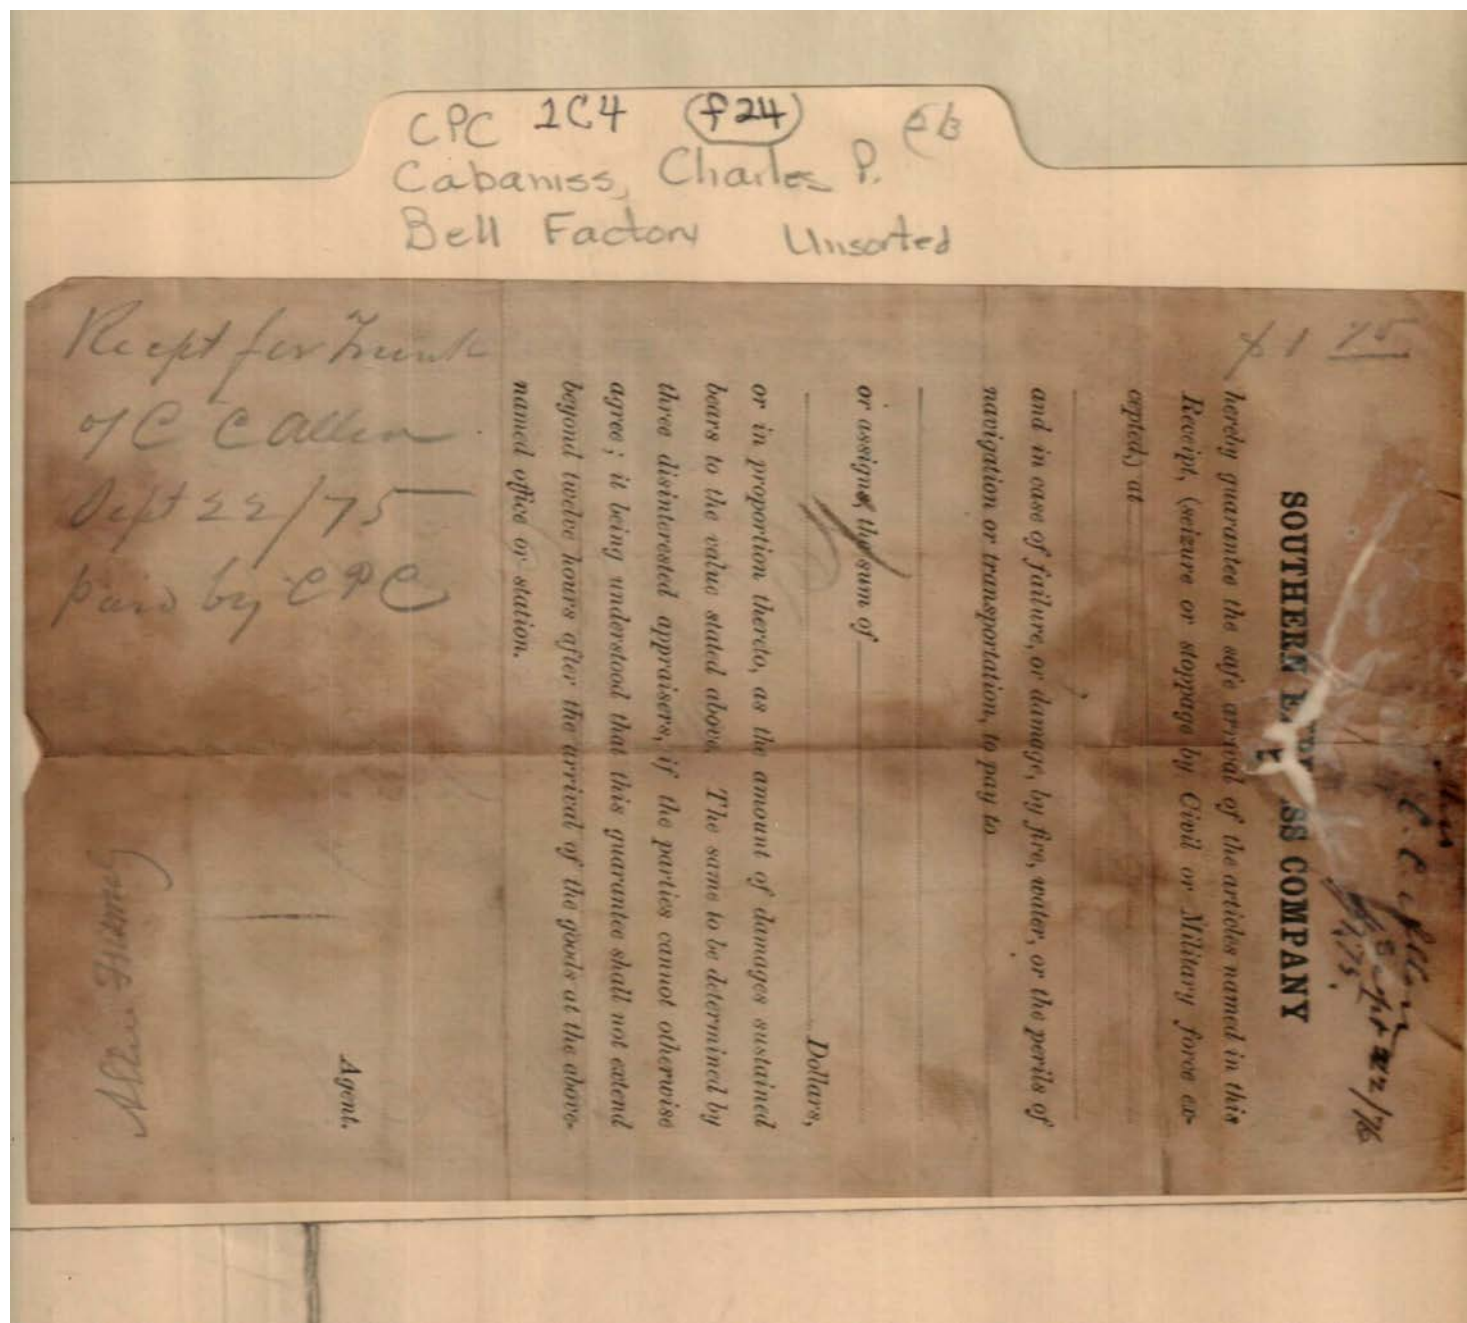 CPC 1C4 f24
Cabaniss, Charles P.
Bell Factory Unsorted
Recept for Trunk
of C C Allen
Sept 22/75
paid by CPC
$1 75
C. C. Allen
Sept 22/75
SOUTHERN COMPANY
hereby guarantee the safe arrival of the articles named in this
Receipt, (seizure or stoppage by Civil or Military force ex-
cepted,) at
and in case of failure, or damage, by fire, water, or the perils of
navigation or transportation, to pay to
or assigns, the sum of
Dollars,
or in proportion thereto, as the amount of damages sustained
bears to the value stated above. The same to be determined by
three disinterested appraisers, if the parties cannot otherwise
agree; it being understood that this guarantee shall not extend
beyond twelve hours after the arrival of the goods at the above-
named office or station.
Agent.